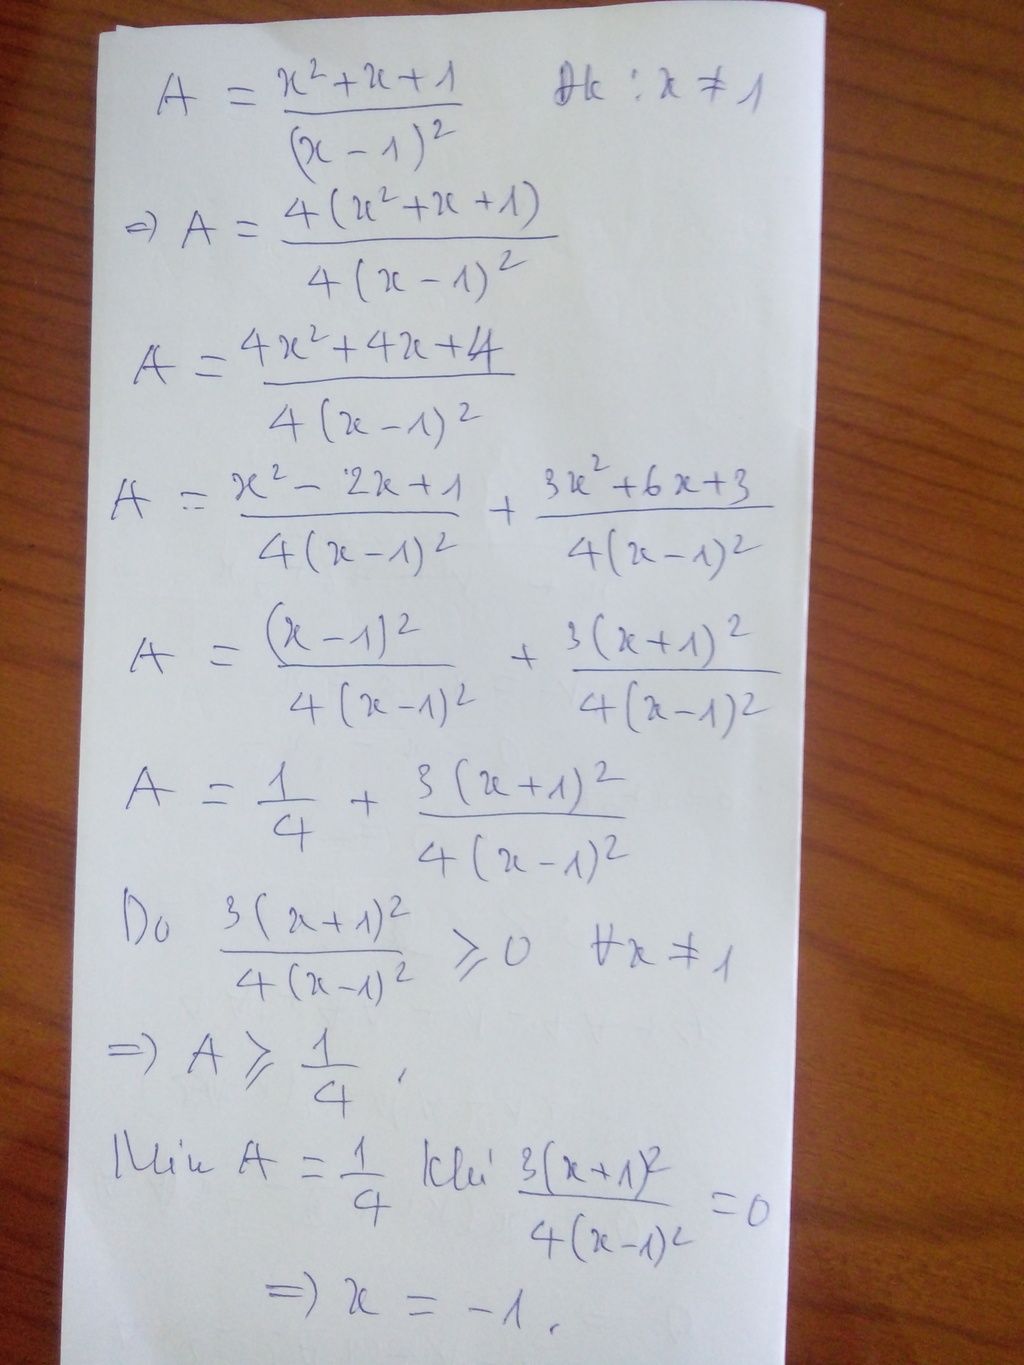 A = \frac{x^2+x+1}{(x-1)^2} Đk : x ≠ 1
=) A = \frac{4(x^2+x+1)}{4(x-1)^2}
A = \frac{4x^2+4x+4}{4(x-1)^2}
A = \frac{x^2-2x+1}{4(x-1)^2} + \frac{3x^2+6x+3}{4(x-1)^2}
A = \frac{(x-1)^2}{4(x-1)^2} + \frac{3(x+1)^2}{4(x-1)^2}
A = \frac{1}{4} + \frac{3(x+1)^2}{4(x-1)^2}
Do \frac{3(x+1)^2}{4(x-1)^2} ⩾ 0 ∀x ≠ 1
=) A ⩾ \frac{1}{4} .
Min A = \frac{1}{4} khi \frac{3(x+1)^2}{4(x-1)^2} = 0
=) x = -1 .